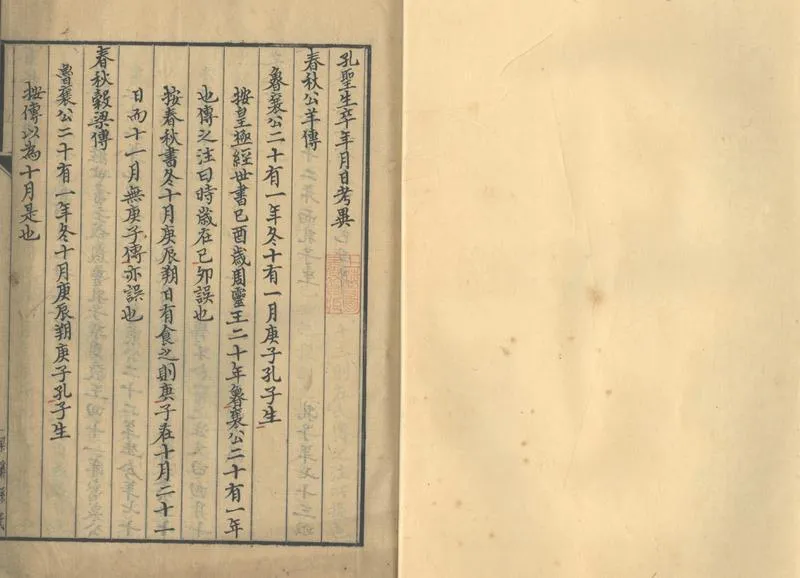 孔聖生卒年月日考異
春秋公羊傳
魯襄公二十有一年冬十有一月庚子孔子生
按皇極經世書己酉歲周靈王二十年魯襄公二十有一年
也傳之注曰時歲在己卯誤也
按春秋書冬十月庚辰朔日有食之則庚子在十月二十一
日而十一月無庚子傳亦誤也
春秋穀梁傳
魯襄公二十有一年冬十月庚辰朔庚子孔子生
按傳以為十月是也